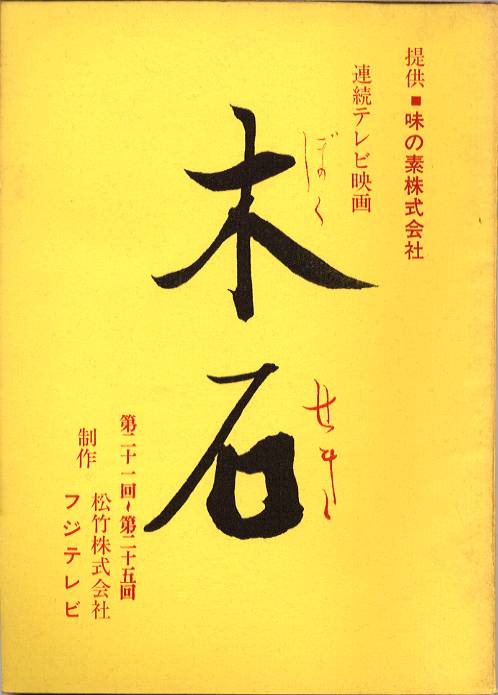 提供■味の素株式会社
連続テレビ映画
木石
ぼく
せき
第二十一回~第二十五回
制作
松竹株式会社
フジテレビ